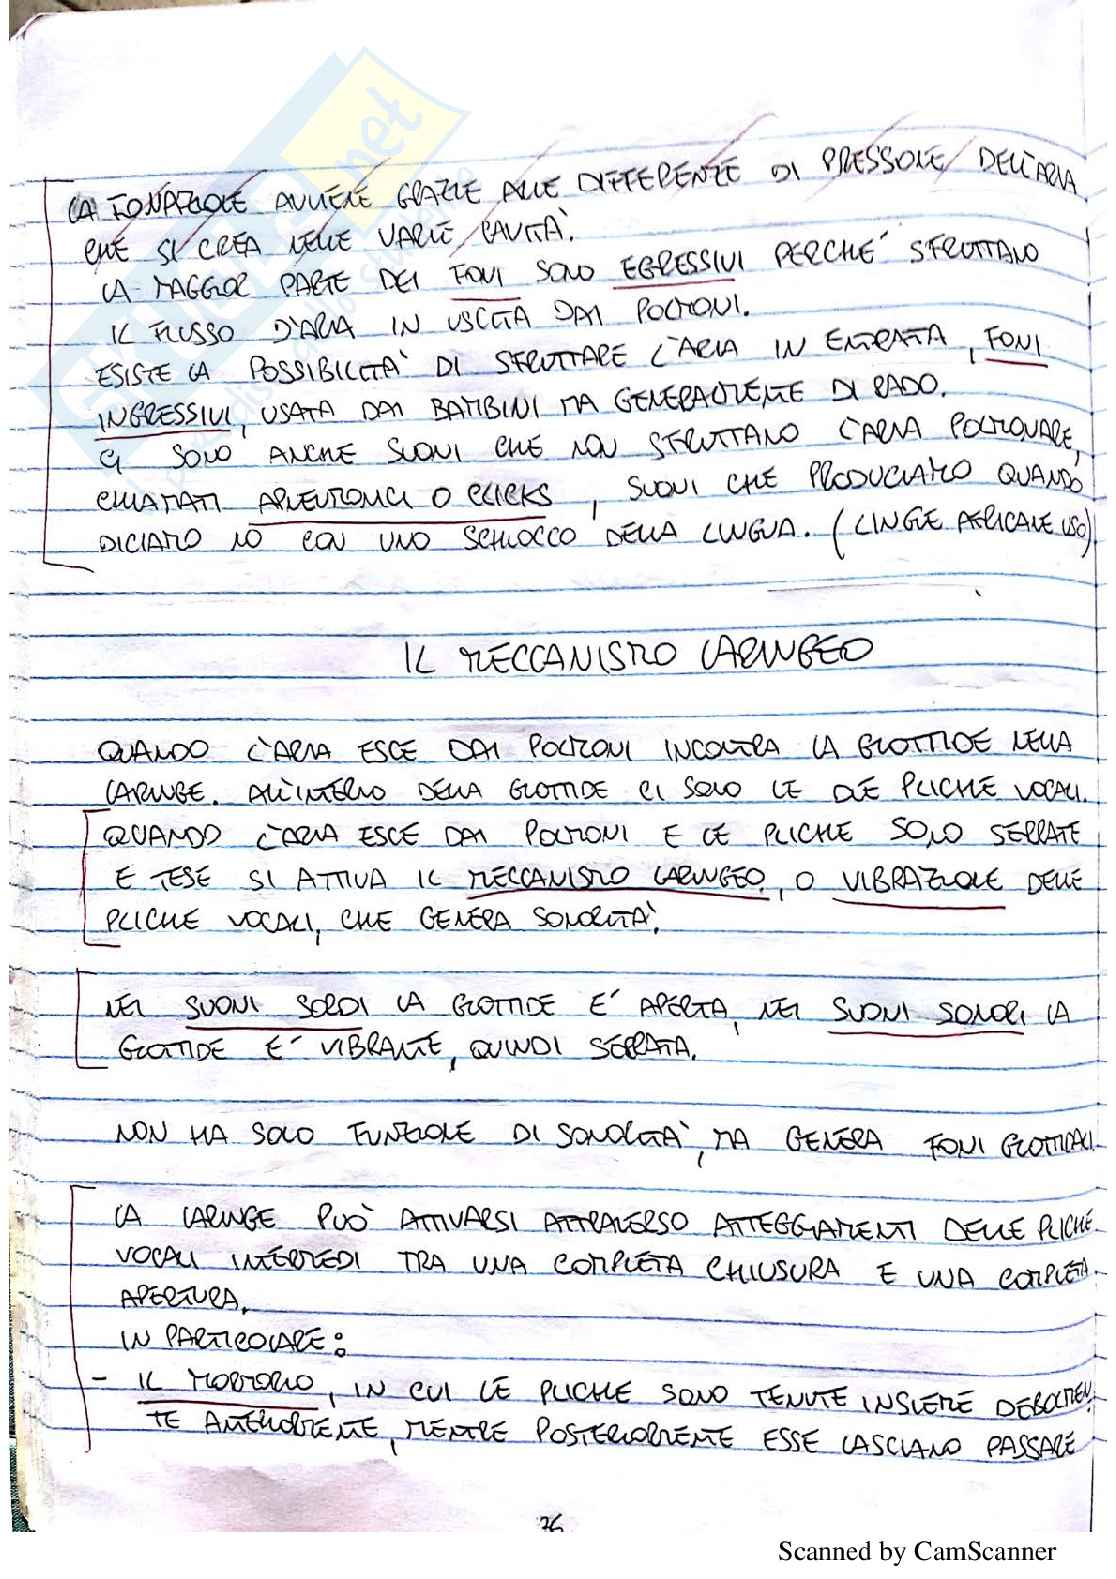 LA FONAZIONE AVVIENE GRAZIE ALLE DIFFERENZE DI PRESSIONE DELL'ARIA
CHE SI CREA NELLE VARIE CAVITÀ.
LA MAGGIOR PARTE DEI FONI SONO EGRESSIVI PERCHÉ SFRUTTANO
IL FLUSSO D'ARIA IN USCITA DAI POLMONI.
ESISTE LA POSSIBILITÀ DI SFRUTTARE L'ARIA IN ENTRATA, FONI
INGRESSIVI, USATA DAI BAMBINI MA GENERALMENTE DI RADO.
CI SONO ANCHE SUONI CHE NON SFRUTTANO L'ARIA POLMONARE,
CHIAMATI APNEUMONICI O CLICKS, SUONI CHE PRODUCIAMO QUANDO
DICIAMO NO CON UNO SCHIOCCO DELLA LINGUA. (LINGUE AFRICANE USO)
IL MECCANISMO LARINGEO
QUANDO L'ARIA ESCE DAI POLMONI INCONTRA LA GLOTTIDE NELLA
LARINGE. ALL'INTERNO DELLA GLOTTIDE CI SONO LE DUE PLICHE VOCALI.
QUANDO L'ARIA ESCE DAI POLMONI E LE PLICHE SONO SERRATE
E TESE SI ATTIVA IL MECCANISMO LARINGEO, O VIBRAZIONE DELLE
PLICHE VOCALI, CHE GENERA SONORITÀ.
NEI SUONI SORDI LA GLOTTIDE E' APERTA, NEI SUONI SONORI LA
GLOTTIDE E' VIBRANTE, QUINDI SERRATA.
NON HA SOLO FUNZIONE DI SONORITÀ, MA GENERA FONI GLOTTIDALI
LA LARINGE PUÒ ATTIVARSI ATTRAVERSO ATTEGGIAMENTI DELLE PLICHE
VOCALI INTERMEDI TRA UNA COMPLETA CHIUSURA E UNA COMPLETA
APERTURA.
IN PARTICOLARE:
- IL MORMORIO, IN CUI LE PLICHE SONO TENUTE INSIEME DEBOLMEN
TE ANTERIORMENTE, MENTRE POSTERIORMENTE ESSE LASCIANO PASSARE
76
Scanned by CamScanner